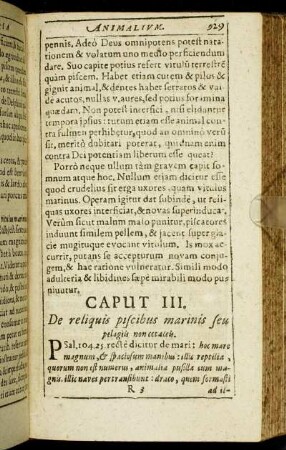 ANIMALIVM. 529
pennis. Adeò Deus omnipotens potest nata-
tionem & volatum uno medio perficiendum
dare. Suo capite potius refert vitulū terrestrē
quàm piscem. Habet etiam cutem & pilus &
gignit animal, & dentes habet serratos & val-
de acutos, nullas v. aures, sed potius foramina
quædam. Non potest interfici, nisi elidantur
tempora ipsius: tutum etiam esse animal con-
tra fulmen perhibetur, quod an omnino verū
sit, meritò dubitari poterat, quidnam enim
contra Dei potentiam liberum esse queat?
Porrò neque ullum tàm gravem capit som-
num atque hoc. Nullum etiam dicitur esse
quod crudelius sit erga uxores quam vitulus
marinus. Operam igitur dat subinde, ut reli-
quas uxores interficiat, & novas superinducat.
Verùm sicut malum malo punitur, piscatores
induunt similem pellem, & jacent supergla-
cie mugituque evocant vitulum. Is mox ac-
currit, putans se accepturum novam conju-
gem, & hac ratione vulneratur. Simili modo
adulteria & libidines sæpè mirabili modo pu-
niuntur.
CAPUT III.
De reliquis piscibus marinis seu
pelagiis non cetaceis.
PSal. 104. 25. rectè dicitur de mari: hoc mare
magnum, & spaciosum manibus: illic reptilia,
quorum non est numerus, animalia pusilla cum ma-
gnis. illic naves pertransibunt: draco, quem formasti
R 3 ad il-